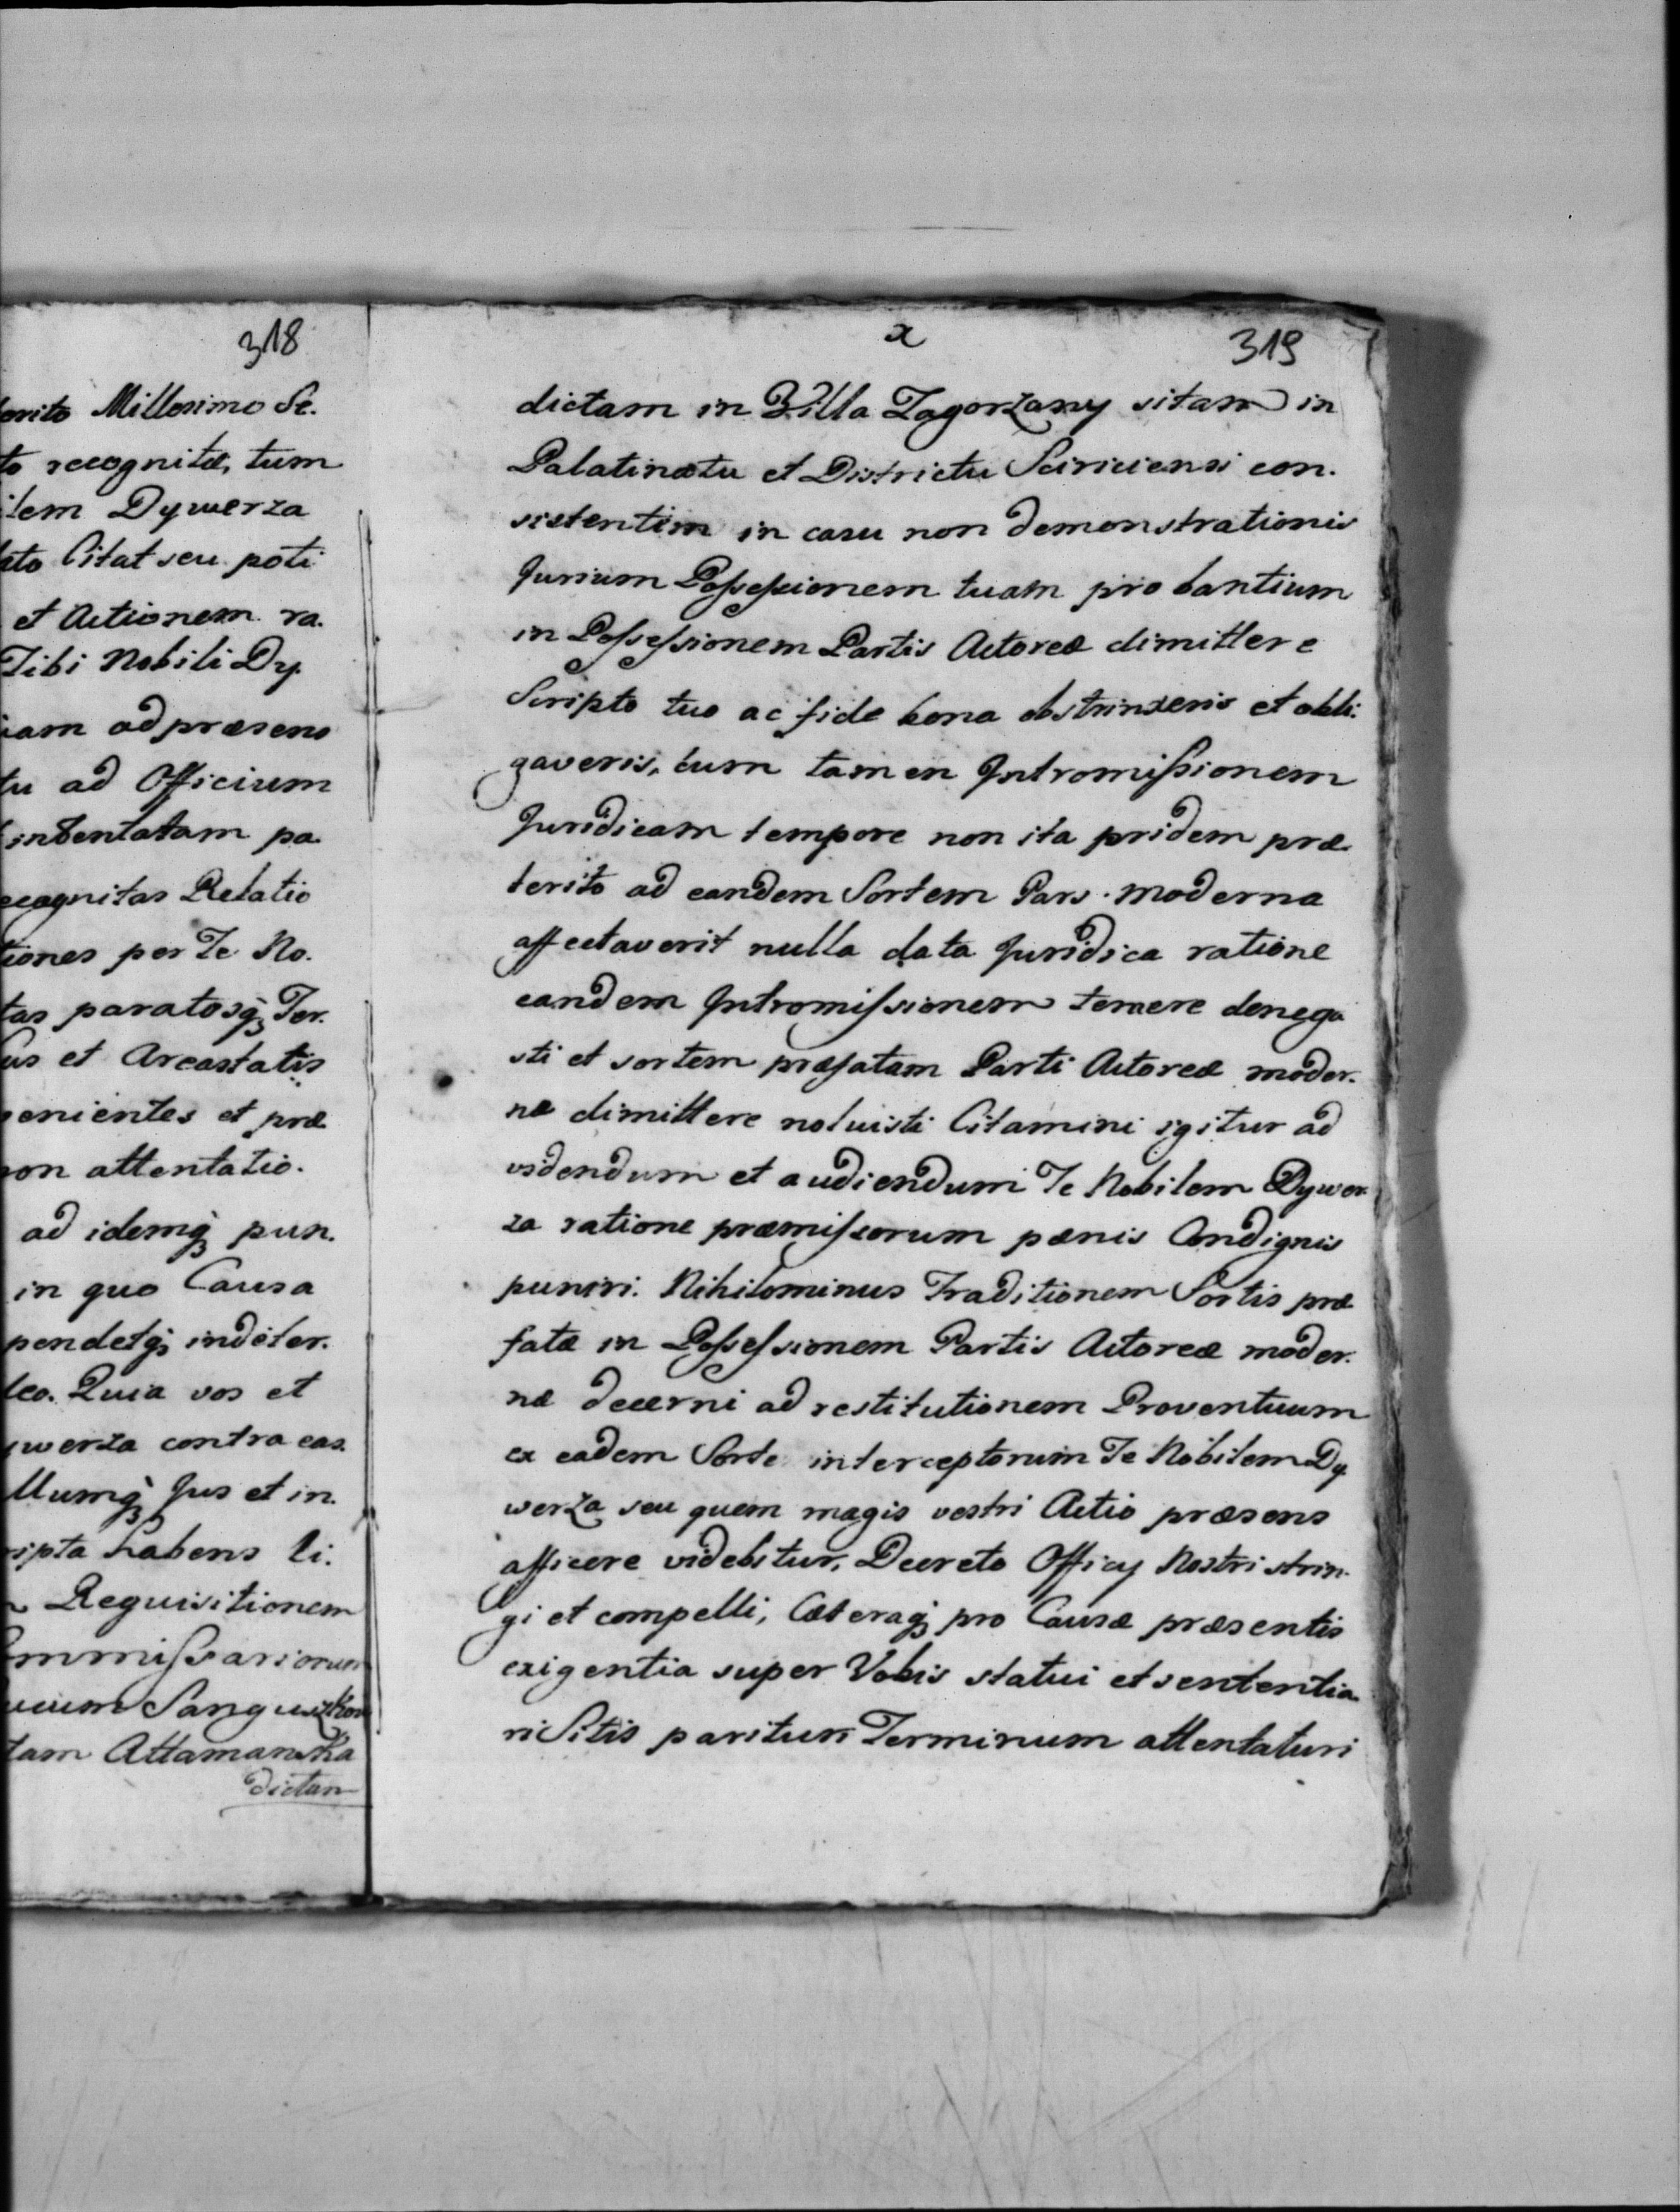 318
orito Millesimo Se.
to recognitæ, tum
ilem Dywerza
ato Citat seu poti
et Actionem ra.
Tibi Nobili Dy
iam ad præsens
tu ad Officium
intentatam pa.
ecognitas Relatio
tiones per Te No.
tas paratosq; Ter.
us et Arcastatis
venientes et præ
non attentatio.
ad idemq; pun.
in quo Causa
pendetq; indeter.
leo. Quia vos et
ywerza contra eas.
llumq; Jus et in.
ripta habens li.
Requisitionem
ommissariorum
ucum Sanguszkow
tam Attamanska
dictam
x
319
dictam in Villa Zagorzany sitam in
Palatinatu et Districtu Sciriciensi con.
sistentem in casu non demonstrationis
Jurium Possessionem tuam probantium
in Possessionem Partis Actoreæ dimittere
Scripto tuo ac fide bona obstrinxeris et obli.
gaveris, cum tamen Intromissionem
Juridicam tempore non ita pridem præ
terito ad eandem Sortem Pars moderna
affectaverit nulla data Juridica ratione
eandem Intromissionem temere denega
sti et sortem præfatam Parti Actoreæ moder.
næ dimittere noluisti Citamini igitur ad
videndum et audiendum Te Nobilem Dywer
za ratione præmissorum pænis Condignis
puniri. Nihilominus Traditionem Sortis præ
fatæ in Possessionem Partis Actoreæ moder.
næ decerni ad restitutionem Proventuum
ex eadem Sorte interceptorum Te Nobilem Dy
werza seu quem magis vestri Actio præsens
afficere videbitur, Decreto Officy Nostri strin.
gi et compelli, Cæteraq; pro Causæ præsentis
exigentia super Vobis statui et sententia.
ri Sitis parituri Terminum attentaturi